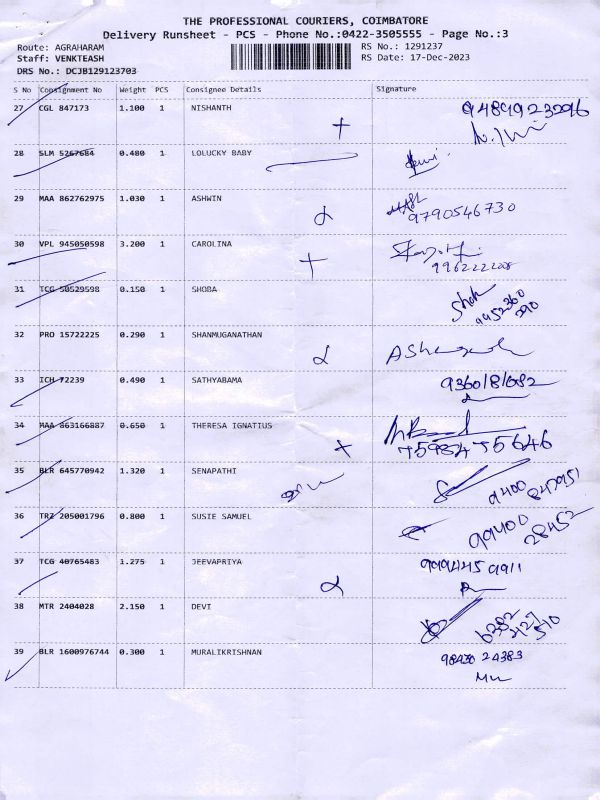 THE PROFESSIONAL COURIERS, COIMBATORE
Delivery Runsheet - PCS - Phone No.:0422-3505555 - Page No.:3
Route: AGRAHARAM RS No.: 1291237
Staff: VENKTEASH RS Date: 17-Dec-2023
DRS No.: DCJB129123703
S No Consignment No Weight PCS Consignee Details Signature
27 CGL 847173 1.100 1 NISHANTH 9489923296
28 SLM 5267684 0.480 1 LOLUCKY BABY
29 MAA 862762975 1.030 1 ASHWIN
9790546730
30 VPL 945050598 3.200 1 CAROLINA
31 TCG 50529598 0.150 1 SHOBA
32 PRO 15722225 0.290 1 SHANMUGANATHAN
33 ICH 72239 0.490 1 SATHYABAMA
34 MAA 863166887 0.650 1 THERESA IGNATIUS
35 BLR 645770942 1.320 1 SENAPATHI
36 TRZ 205001796 0.800 1 SUSIE SAMUEL
99400
28452
37 TCG 40765483 1.275 1 JEEVAPRIYA 9994459911
38 MTR 2404028 2.150 1 DEVI
6382
2127
510
39 BLR 1600976744 0.300 1 MURALIKRISHNAN 98430 24383